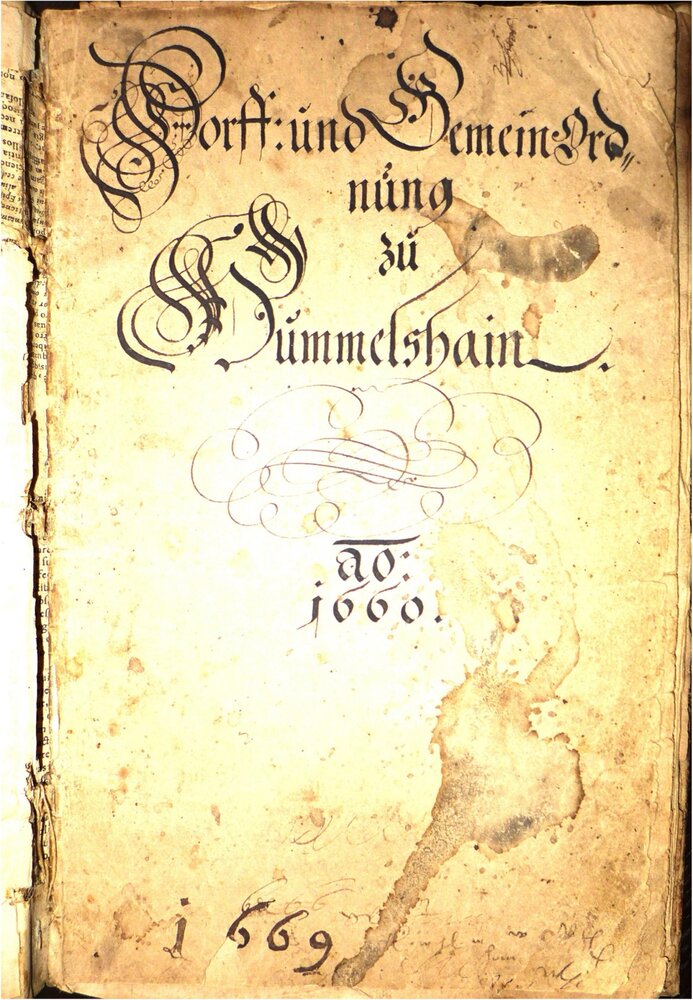 Dorff: und Gemein Ord„
nung
zu
Hummelshain.
ao:
1660.
1669